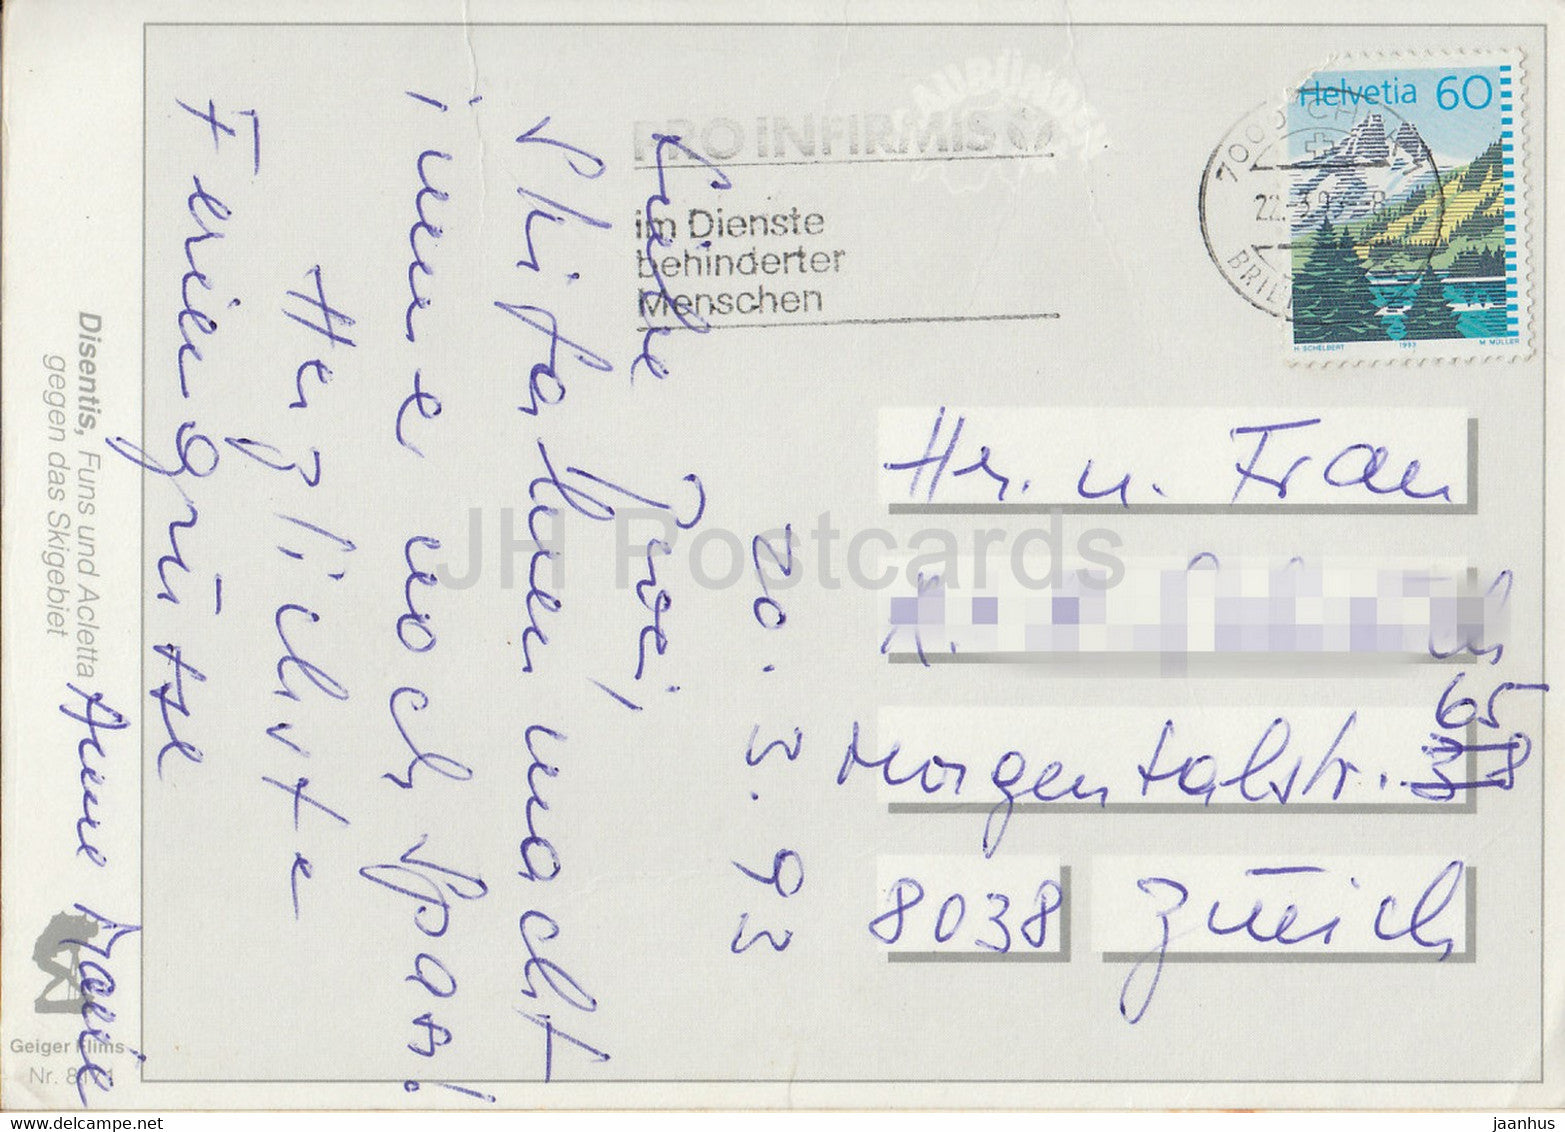 Helvetia 60
H. SCHELBERT 1993 M. MÜLLER
PRO INFIRMIS
im Dienste
behinderter
Menschen
22.-3.93.-8
20.3.93
Liebe
Skifahren macht
immer noch Spass!
Herzlichste
Feriengrüsse
Anne Marie
Hr. u. Frau
Morgentalstr. 65
8038 Zürich
Disentis, Funs und Acletta
gegen das Skigebiet
Geiger Flims
Nr.
JH Postcards
www.delcampe.net
jaanhus